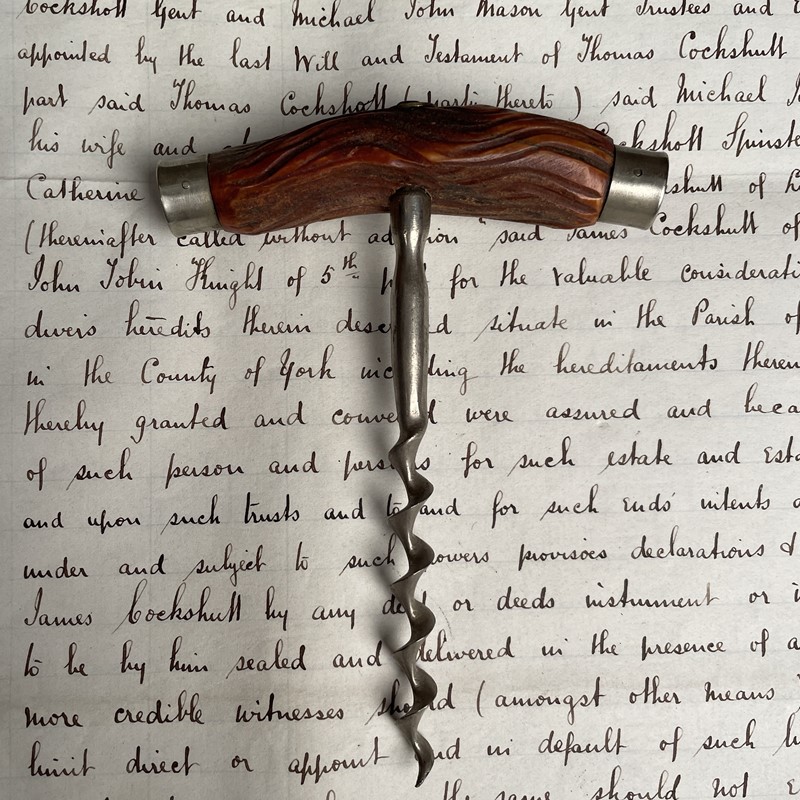 Cockshott Gent and Michael John Mason Gent Trustees and
appointed by the last Will and Testament of Thomas Cockshutt
part said Thomas Cockshott (party thereto) said Michael
his wife and Cockshott Spinste
Catherine shutt of
(thereinafter called without addition "said James Cockshutt of
John Tobin Knight of 5th part for the valuable considerati
divers heredits therein described situate in the Parish of
in the County of York including the hereditaments therein
thereby granted and conveyed were assured and beca
of such person and persons for such estate and Esta
and upon such trusts and to and for such ends intents
under and subject to such powers provisoes declarations &
James Cockshutt by any deed or deeds instrument or
to be by him sealed and delivered in the presence of
more credible witnesses should (amongst other means)
limit direct or appoint and in default of such
the same should not